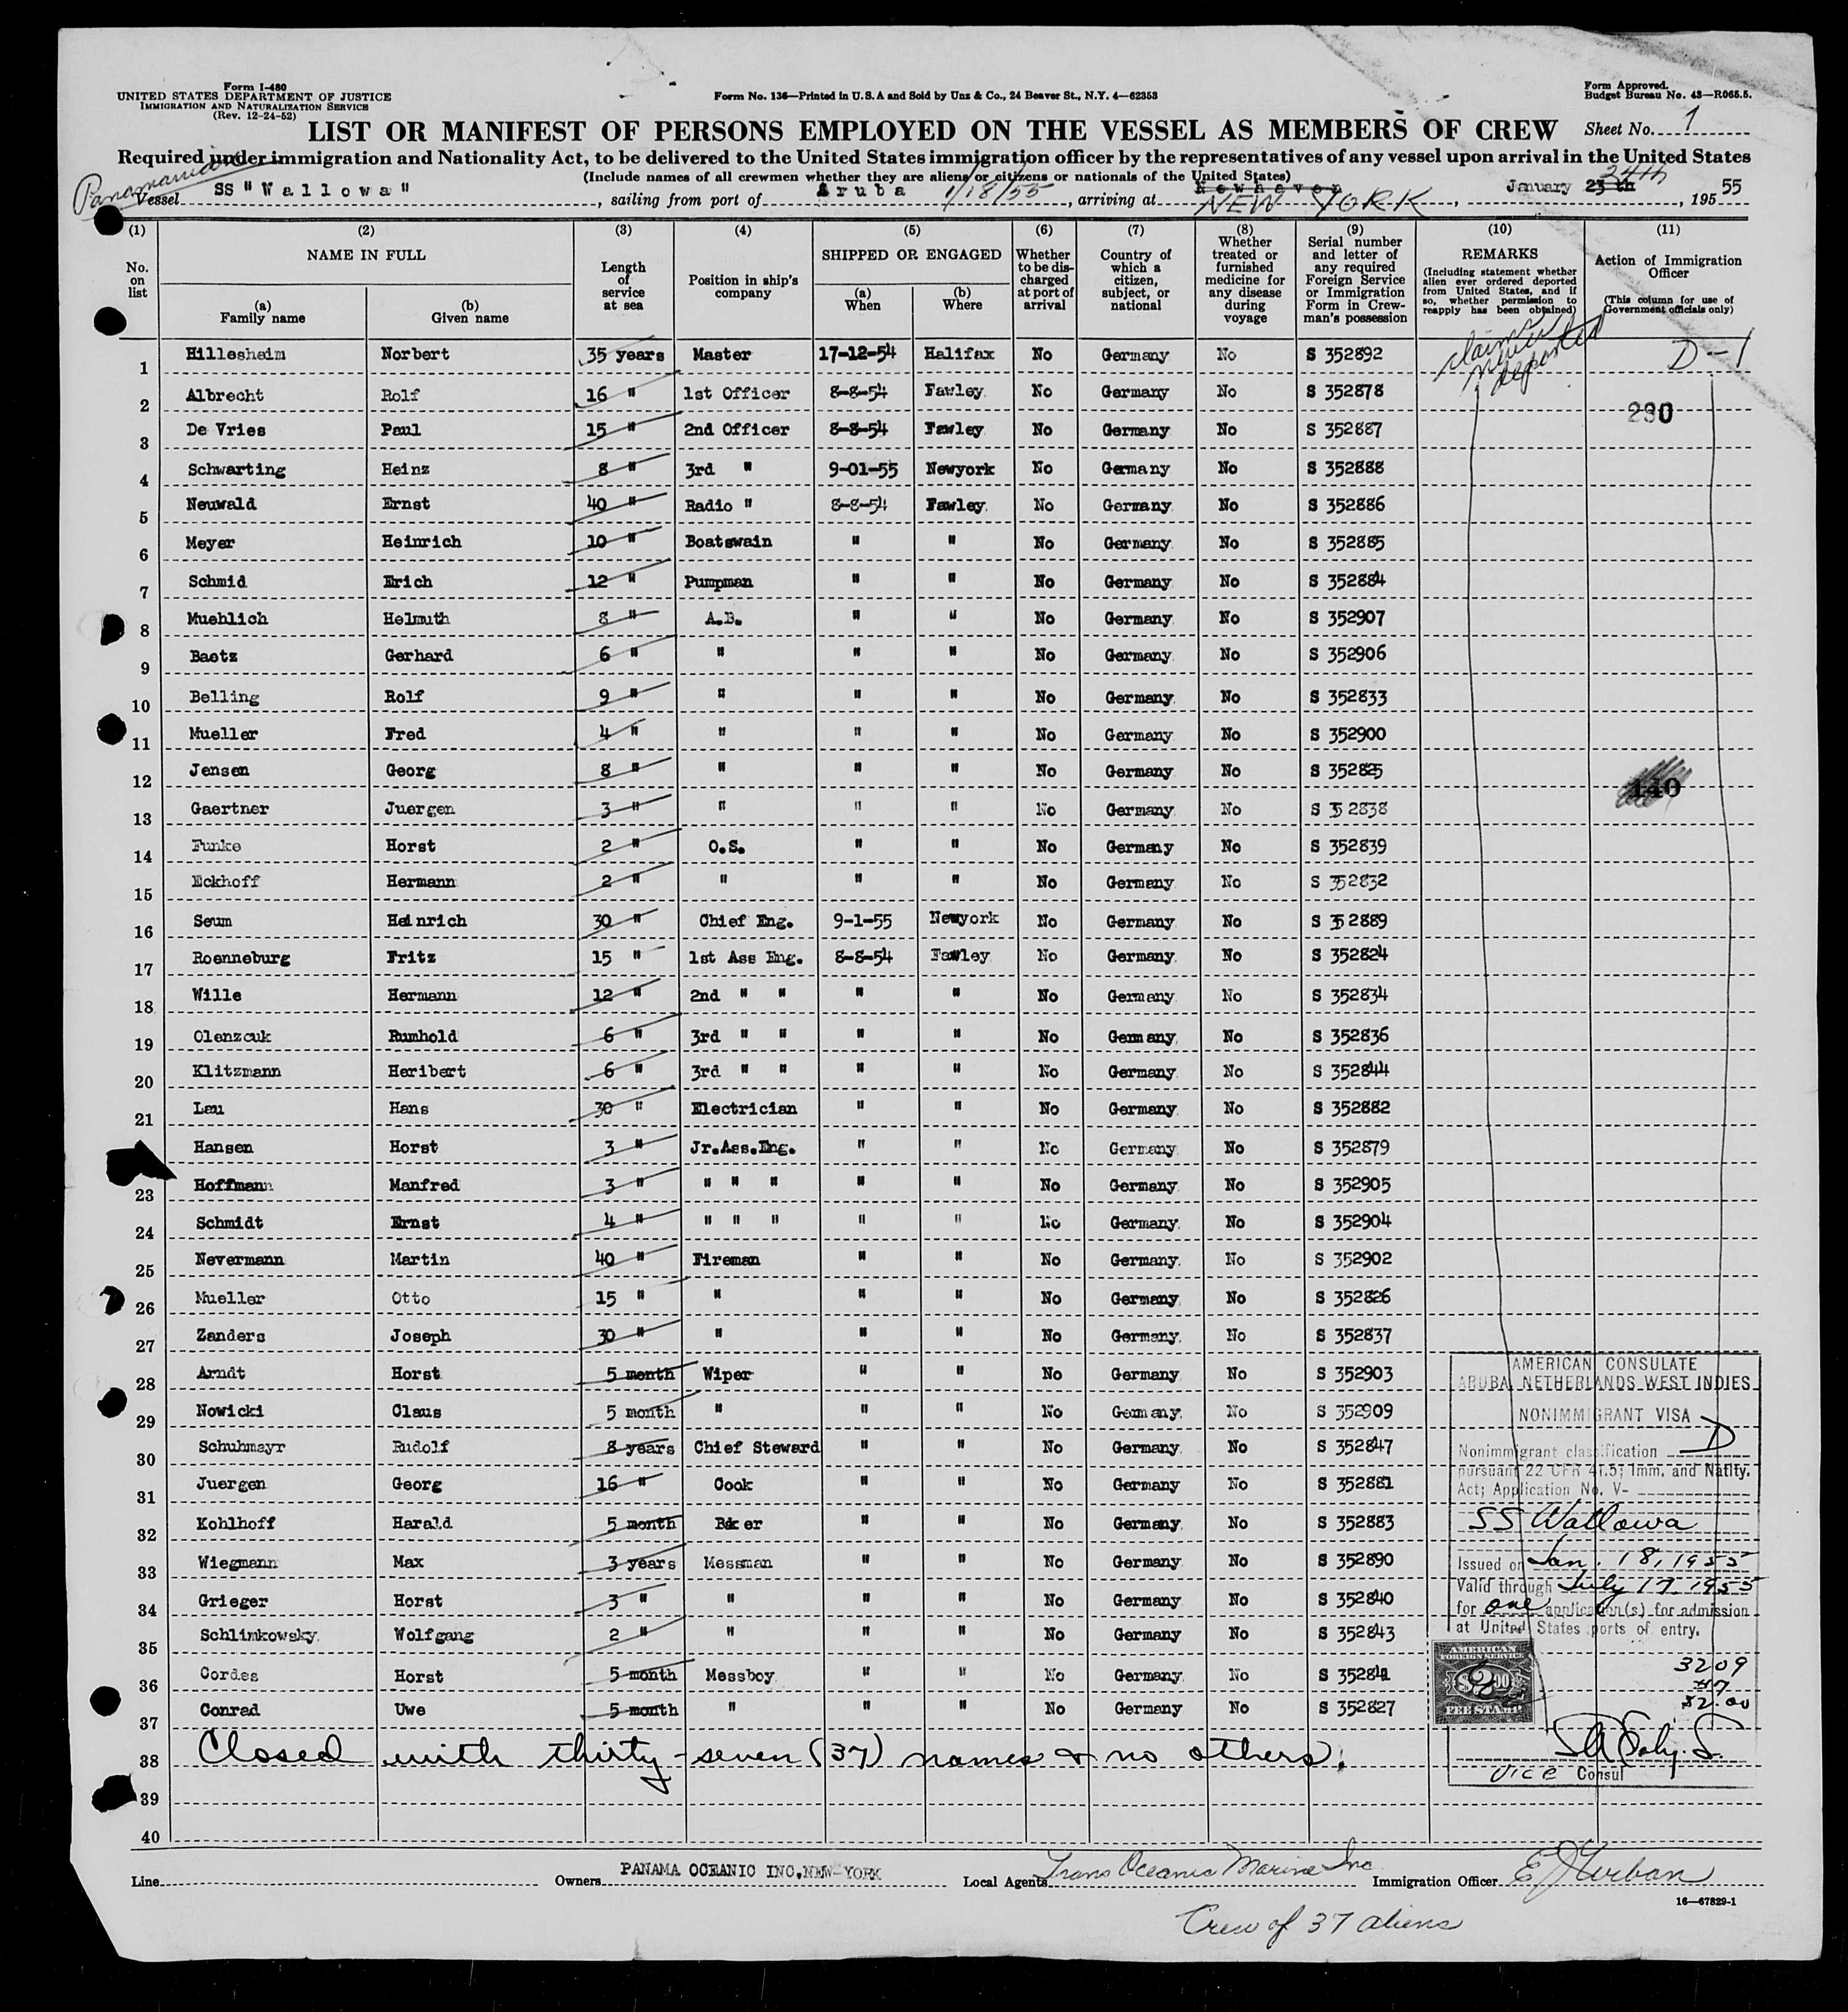 Form I-480
UNITED STATES DEPARTMENT OF JUSTICE
IMMIGRATION AND NATURALIZATION SERVICE
(Rev. 12-24-52)
Form No. 136—Printed in U.S.A and Sold by Unz & Co., 24 Beaver St., N.Y. 4—62353
Form Approved.
Budget Bureau No. 43—R065.5.
LIST OR MANIFEST OF PERSONS EMPLOYED ON THE VESSEL AS MEMBERS OF CREW Sheet No. 1
Required under immigration and Nationality Act, to be delivered to the United States immigration officer by the representatives of any vessel upon arrival in the United States
(Include names of all crewmen whether they are aliens or citizens or nationals of the United States)
Panamanian
Vessel SS "Wallowa", sailing from port of Aruba 1/18/55, arriving at Newhaven NEW YORK, January 23th 24th, 1955
(1) (2) (3) (4) (5) (6) (7) (8) (9) (10) (11)
No. on list
NAME IN FULL
(a) Family name
(b) Given name
Length of service at sea
Position in ship's company
SHIPPED OR ENGAGED
(a) When
(b) Where
Whether to be discharged at port of arrival
Country of which a citizen, subject, or national
Whether treated or furnished medicine for any disease during voyage
Serial number and letter of any required Foreign Service or Immigration Form in Crewman's possession
REMARKS
(Including statement whether alien ever ordered deported from United States, and if so, whether permission to reapply has been obtained)
Action of Immigration Officer
(This column for use of Government officials only)
1 Hillesheim Norbert 35 years Master 17-12-54 Halifax No Germany No S 352892 claims never deported D-1
2 Albrecht Rolf 16 " 1st Officer 8-8-54 Fawley No Germany No S 352878
230
3 De Vries Paul 15 " 2nd Officer 8-8-54 Fawley No Germany No S 352887
4 Schwarting Heinz 8 " 3rd " 9-01-55 Newyork No Germany No S 352888
5 Neuwald Ernst 40 " Radio " 8-8-54 Fawley No Germany No S 352886
6 Meyer Heinrich 10 " Boatswain " " No Germany No S 352885
7 Schmid Erich 12 " Pumpman " " No Germany No S 352884
8 Muehlich Helmuth 8 " A.B. " " No Germany No S 352907
9 Baetz Gerhard 6 " " " " No Germany No S 352906
10 Belling Rolf 9 " " " " No Germany No S 352833
11 Mueller Fred 4 " " " " No Germany No S 352900
12 Jensen Georg 8 " " " " No Germany No S 352825
140
13 Gaertner Juergen 3 " " " " No Germany No S 352838
14 Funke Horst 2 " O.S. " " No Germany No S 352839
15 Eckhoff Hermann 2 " " " " No Germany No S 352832
16 Seum Heinrich 30 " Chief Eng. 9-1-55 Newyork No Germany No S 352889
17 Roenneburg Fritz 15 " 1st Ass Eng. 8-8-54 Fawley No Germany No S 352824
18 Wille Hermann 12 " 2nd " " " " No Germany No S 352834
19 Olenzcuk Rumhold 6 " 3rd " " " " No Germany No S 352836
20 Klitzmann Heribert 6 " 3rd " " " " No Germany No S 352844
21 Lau Hans 30 " Electrician " " No Germany No S 352882
Hansen Horst 3 " Jr.Ass.Eng. " " No Germany No S 352879
23 Hoffmann Manfred 3 " " " " " " No Germany No S 352905
24 Schmidt Ernst 4 " " " " " " No Germany No S 352904
25 Nevermann Martin 40 " Fireman " " No Germany No S 352902
26 Mueller Otto 15 " " " " No Germany No S 352826
27 Zanders Joseph 30 " " " " No Germany No S 352837
28 Arndt Horst 5 month Wiper " " No Germany No S 352903
29 Nowicki Claus 5 month " " " No Germany No S 352909
30 Schuhmayr Rudolf 8 years Chief Steward " " No Germany No S 352847
31 Juergen Georg 16 " Cook " " No Germany No S 352881
32 Kohlhoff Harald 5 month Baker " " No Germany No S 352883
33 Wiegmann Max 3 years Messman " " No Germany No S 352890
34 Grieger Horst 3 " " " " No Germany No S 352840
35 Schlimkowsky Wolfgang 2 " " " " No Germany No S 352843
36 Cordes Horst 5 month Messboy " " No Germany No S 352841
37 Conrad Uwe 5 month " " " No Germany No S 352827
38 Closed with thirty-seven (37) names & no others.
39
40
AMERICAN CONSULATE
ARUBA, NETHERLANDS WEST INDIES
NONIMMIGRANT VISA
Nonimmigrant classification D
pursuant 22 CFR 41.5; Imm. and Natlty.
Act; Application No. V-
SS Wallowa
Issued on Jan. 18, 1955
Valid through July 17, 1955
for one application(s) for admission
at United States ports of entry.
AMERICAN
FOREIGN SERVICE
$2.00
FEE STAMP
3209
47
$2.00
Vice Consul
Line
Owners PANAMA OCEANIC INC, NEW-YORK
Local Agents Trans Oceanic Marine Inc
Immigration Officer E J Urban
16—67829-1
Crew of 37 aliens